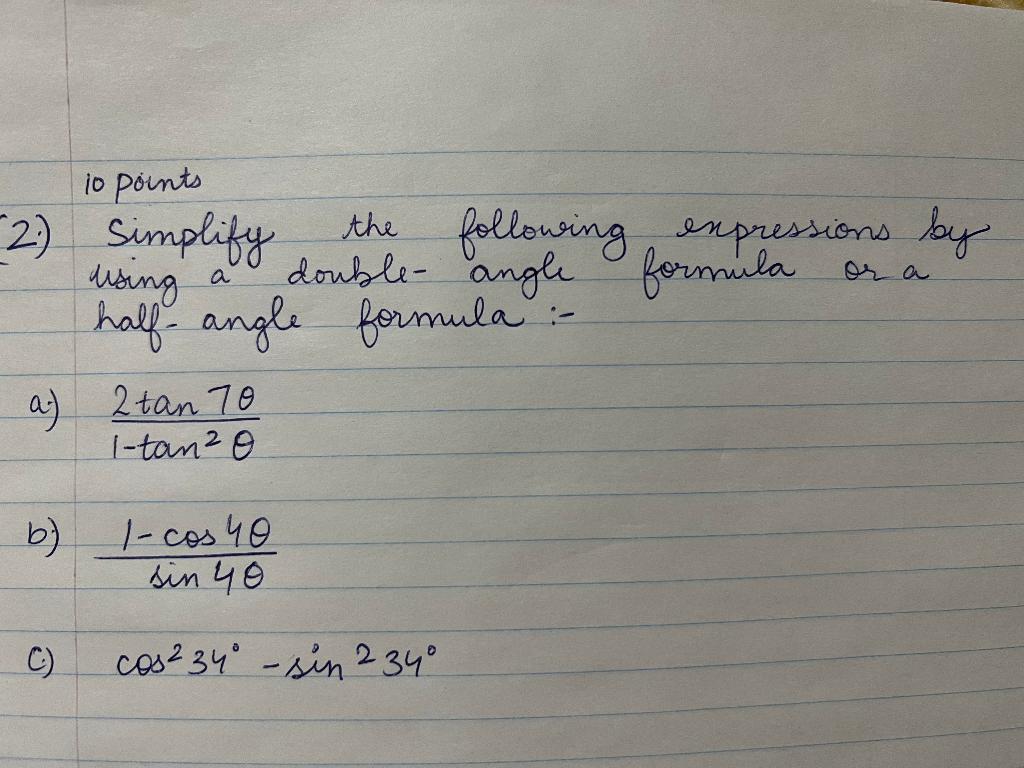 10 points
(2.) Simplify the following expressions by
using a double-angle formula or a
half-angle formula :-
a.) 2 tan 7θ
1-tan² θ
b) 1-cos 4θ
sin 4θ
c.) cos² 34° - sin² 34°